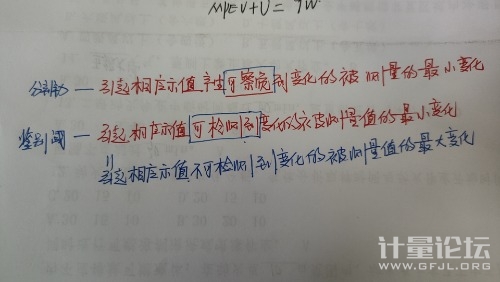 MPEV+U=
分辨力 — 引起相应示值产生可察觉到变化的被测量的最小变化
鉴别阈 — 引起相应示值可检测到变化的被测量值的最小变化
引起相应示值不可检测到变化的被测量值的最大变化
计量论坛
WWW.GFJL.ORG